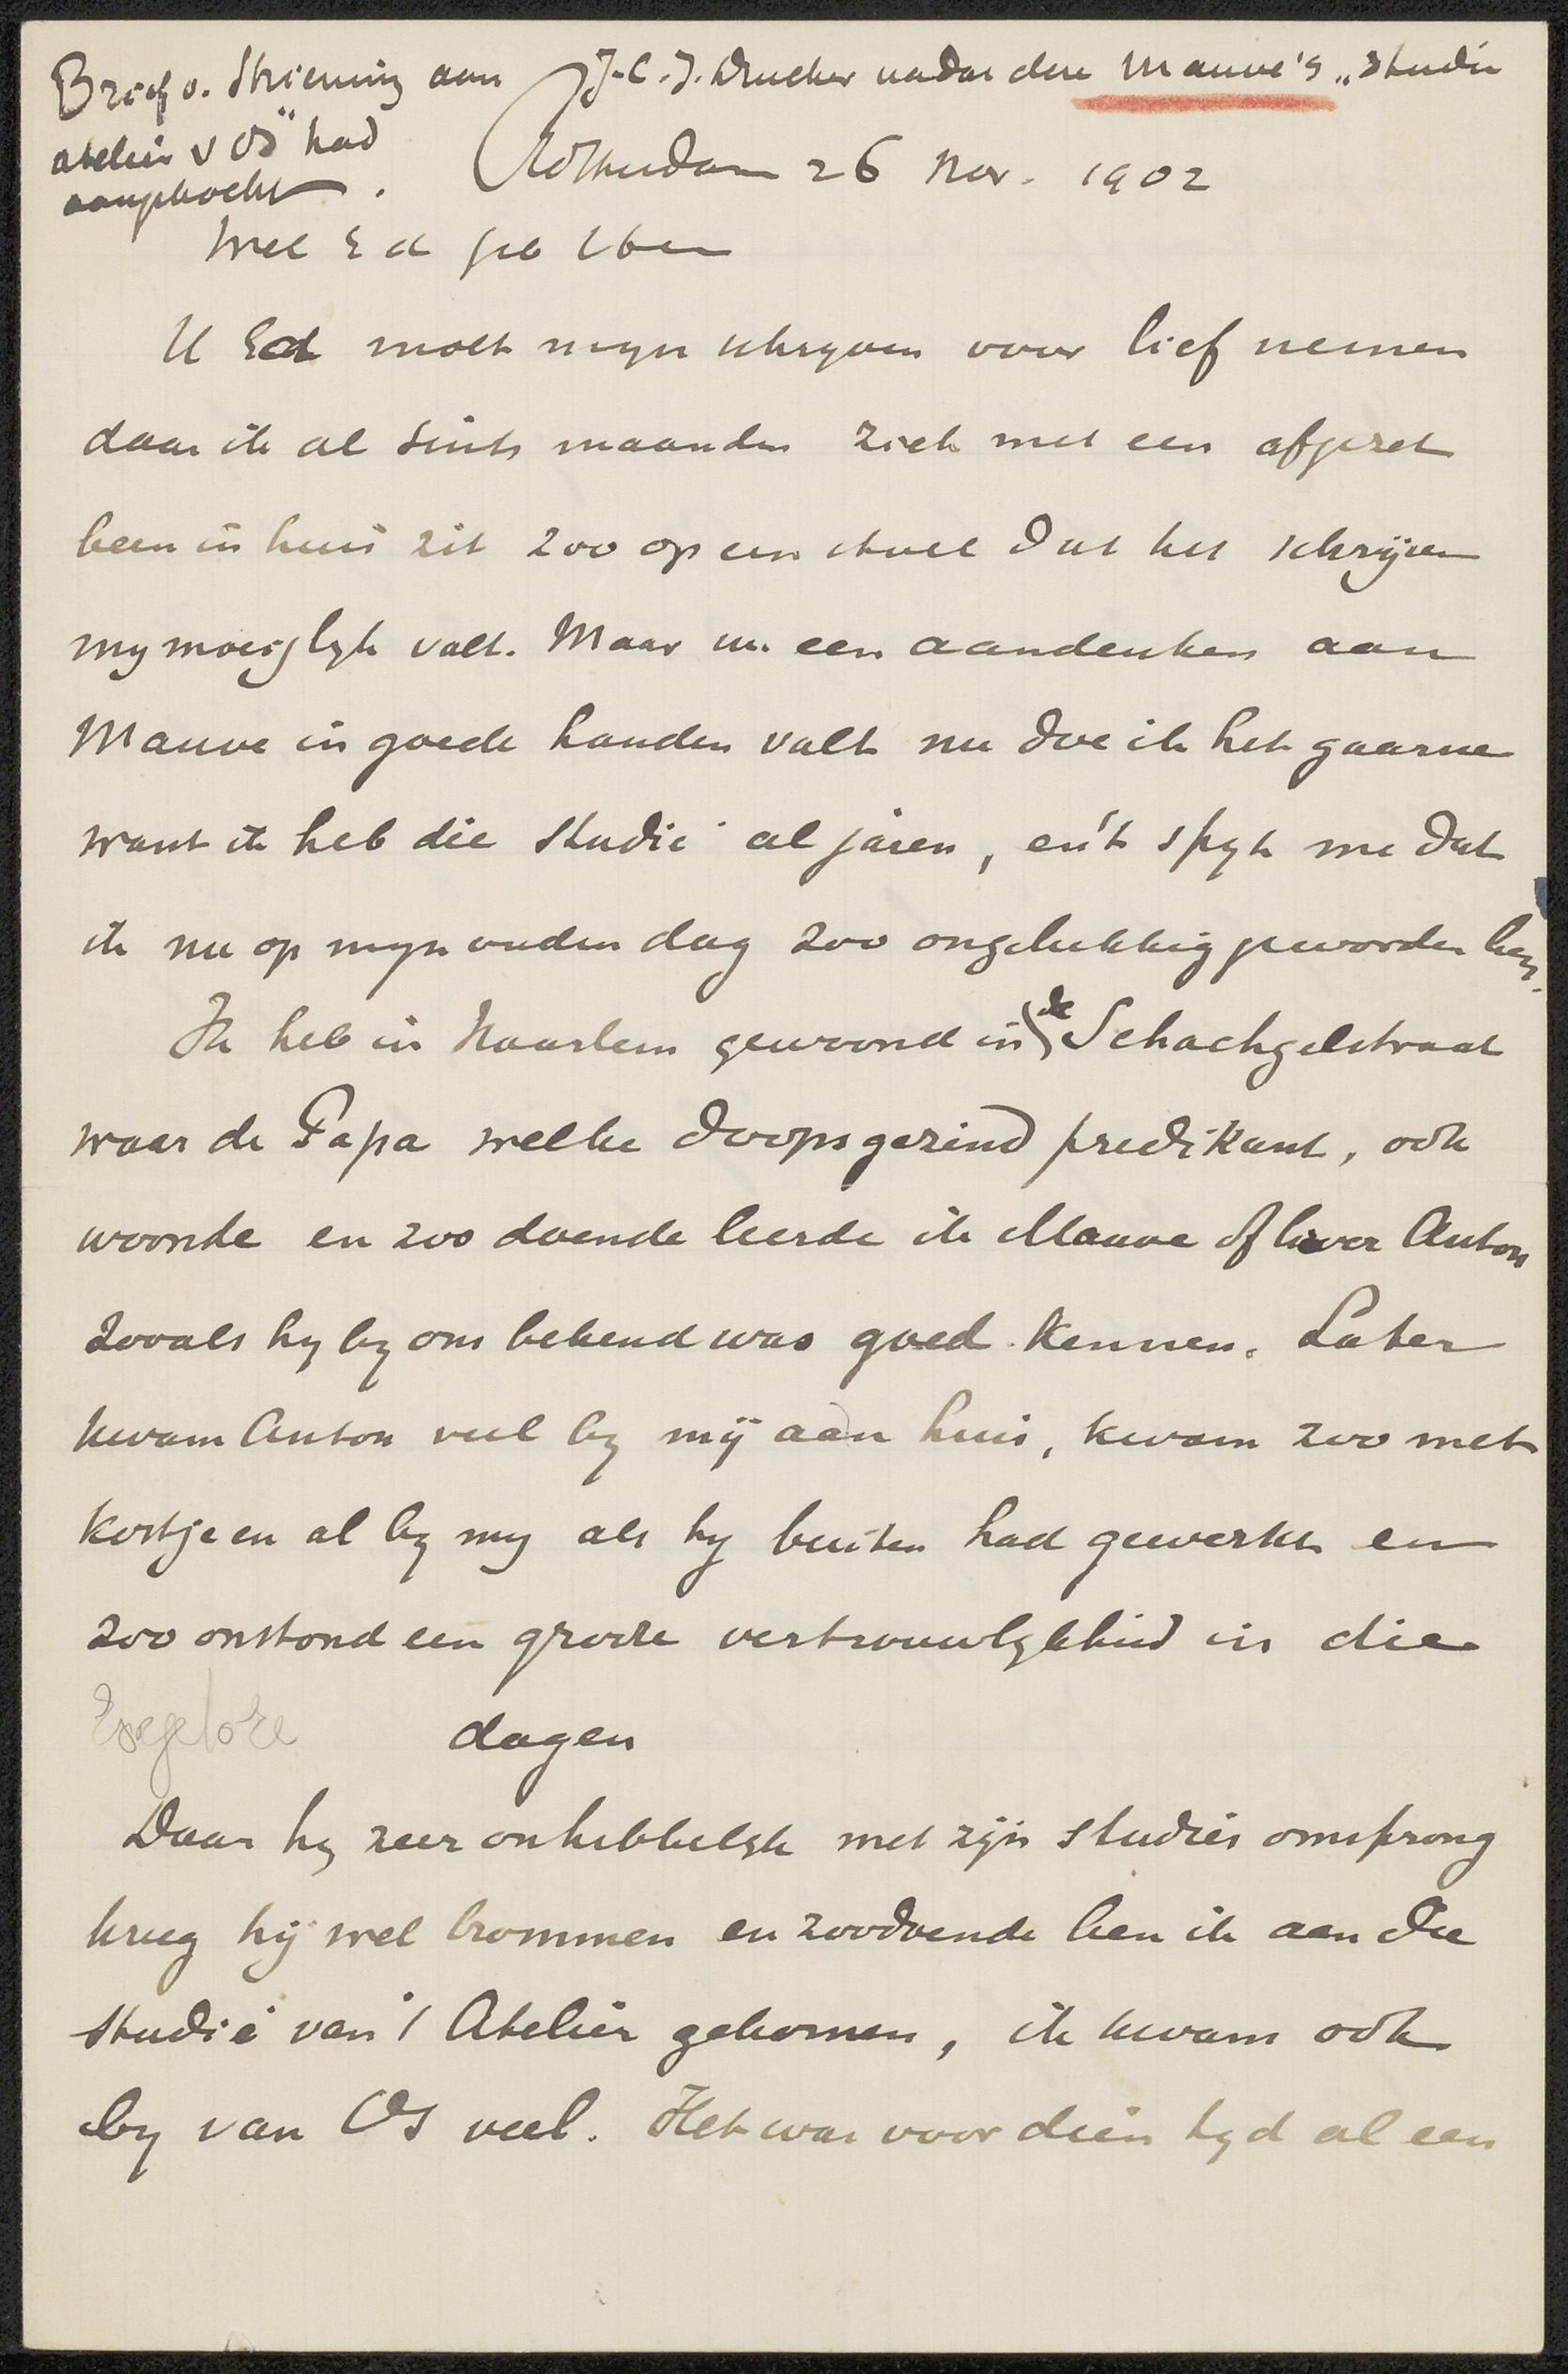 Brief v. Striening aan J.C.J. Drucker nadat deze Mauve's „Studie
atelier v Os" had
aangekocht.
Rotterdam 26 Nov. 1902
Wel Ed geb Heer
U Ed moet myn schryven voor lief nemen
daar ik al sints maanden ziek met een afgezet
been in huis zit zoo op een stoel dat het schrijven
my moeijlyk valt. Maar nu een aandenken aan
Mauve in goede handen valt nu doe ik het gaarne
want ik heb die studie al jaren, en 't spyt me dat
ik nu op myn ouden dag zoo ongelukkig geworden ben.
Ik heb in Haarlem gewoond in de Schachgelstraat
waar de Papa welke doopsgezind predikant, ook
woonde en zoo doende leerde ik Mauve of liever Anton
zooals hy by ons bekend was goed kennen. Later
kwam Anton veel by mij aan huis, kwam zoo met
kostje en al by my als hy buiten had gewerkt en
zoo onstond een groote vertrouwlykheid in die
dagen
Daar hy zeer onhebbelyk met zijn studies omsprong
kreeg hij wel brommen en zoodoende ben ik aan die
studie van 't Atelier gekomen, ik kwam ook
by van Os veel. Het was voor dien tyd al een